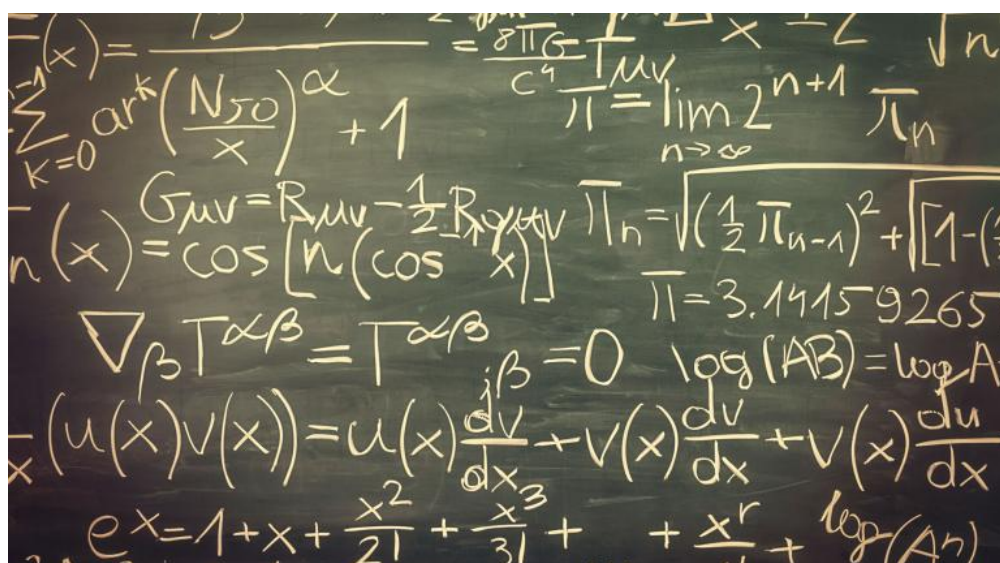 (x) =
= 8πG/c⁴ Tμν
x
√n
n-1 ∑ k=0 arᵏ (N50/x)^α + 1
π = lim n→∞ 2ⁿ⁺¹ πn
Gμν = Rμν - 1/2 R
πn = √(1/2 πn-1)² + √[1-(
n(x) = cos[n(cos x)]
π = 3.14159265
∇β T^αβ = T^αβ jβ = 0
log(AB) = log A
x (u(x)v(x)) = u(x) dv/dx + v(x) dv/dx + v(x) du/dx
eˣ = 1 + x + x²/2! + x³/3! + + xʳ +
log(Aⁿ)